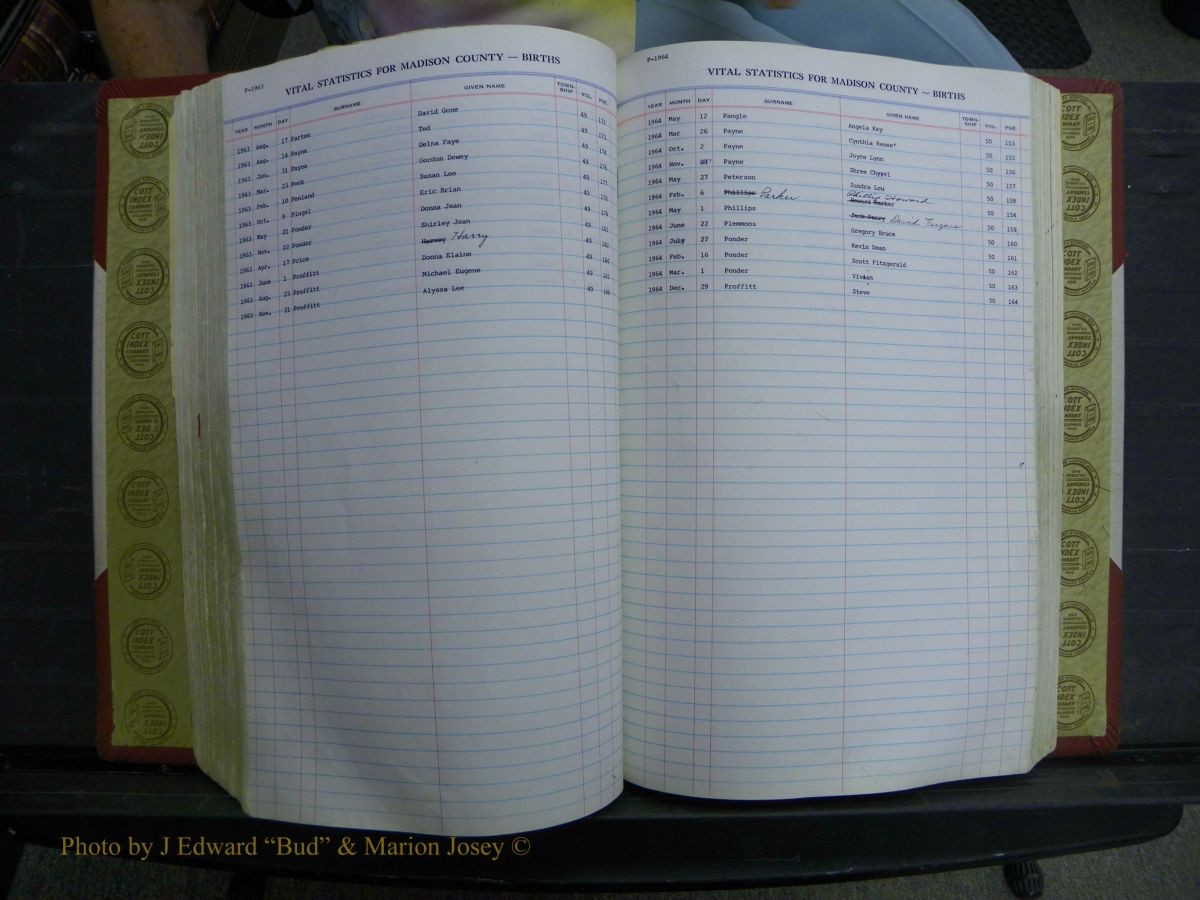 P-1963 VITAL STATISTICS FOR MADISON COUNTY — BIRTHS
YEAR MONTH DAY SURNAME GIVEN NAME TOWN-SHIP VOL. PGE.
1963 Aug. 17 Parton David Gene 49 172
1963 Aug. 24 Payne Ted 49 173
1963 Jan. 31 Payne Delna Faye 49 174
1963 Mar. 23 Peek Gordon Dewey 49 176
1963 Feb. 10 Penland Susan Lee 49 177
1963 Oct. 9 Pingel Eric Brian 49
1963 May 21 Ponder Donna Jean 49 179
1963 Nov. 22 Ponder Shirley Jean 49 181
1963 Apr. 17 Price Harvey Harry 49 182
1963 June 1 Proffitt Donna Elaine 49 184
1963 Aug. 23 Proffitt Michael Eugene 49 185
1963 Nov. 21 Proffitt Alyssa Lee 49
P-1964 VITAL STATISTICS FOR MADISON COUNTY — BIRTHS
YEAR MONTH DAY SURNAME GIVEN NAME TOWN-SHIP VOL. PGE.
1964 May 12 Pangle Angela Kay 50 153
1964 Mar 26 Payne Cynthia Renee' 50 155
1964 Oct. 2 Payne Joyce Lynn 50 156
1964 Nov. Payne Shree 50 157
1964 May 27 Peterson Sondra Lou 50 158
1964 Feb. 6 Phillips Parker Howard Parker Philip Howard 50 154
1964 May 1 Phillips Jack David Eugene 50 159
1964 June 22 Plemmons Gregory Bruce 50 160
1964 July 27 Ponder Kevin Dean 50 161
1964 Feb. 16 Ponder Scott Fitzgerald 50 162
1964 Mar. 1 Ponder Vivian 50 163
1964 Dec. 29 Proffitt Steve 50 164
COTT INDEX COMPANY
Photo by J Edward “Bud” & Marion Josey ©